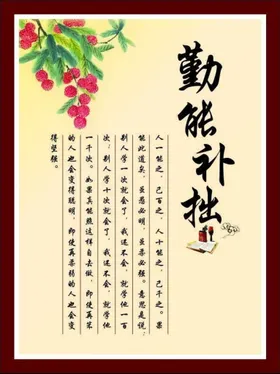 勤能补拙
人一能之，己百之，人十能之，己千之。果
能此道矣，虽愚必明，虽柔必强。意思是说：
别人学一次就会了，我还不会，就学他一百
次；别人学十次就会了，我还不会，就学他
一千次。如果真能照这样自去做，即使再笨
的人也会变得聪明，即使再柔弱的人也会变
得坚强。